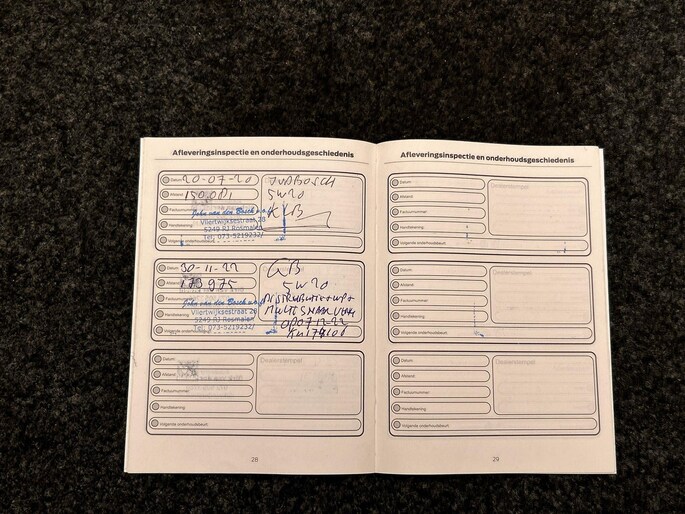 Afleveringsinspectie en onderhoudsgeschiedenis
Datum 20-07-20
JVDBOSCH
Afstand 150.001
5W20
Factuurnummer
KLB
John van den Bosch
Handtekening
Vliertwijksestraat 28
5249 RJ Rosmalen
Tel: 073-5219232/
Volgende onderhoudsbeurt
Datum 30-11-22
GB
Afstand 173975
5W20
Factuurnummer
John van den Bosch
MULTISNAAR
Handtekening
Vliertwijksestraat 28
5249 RJ Rosmalen
Tel: 073-5219232/
Datum
Dealerstempel
Afstand
Factuurnummer
Handtekening
Volgende onderhoudsbeurt
28
Afleveringsinspectie en onderhoudsgeschiedenis
Datum
Dealerstempel
Afstand
Factuurnummer
Handtekening
Volgende onderhoudsbeurt
Datum
Dealerstempel
Afstand
Factuurnummer
Handtekening
Volgende onderhoudsbeurt
Datum
Dealerstempel
Afstand
Factuurnummer
Handtekening
Volgende onderhoudsbeurt
29